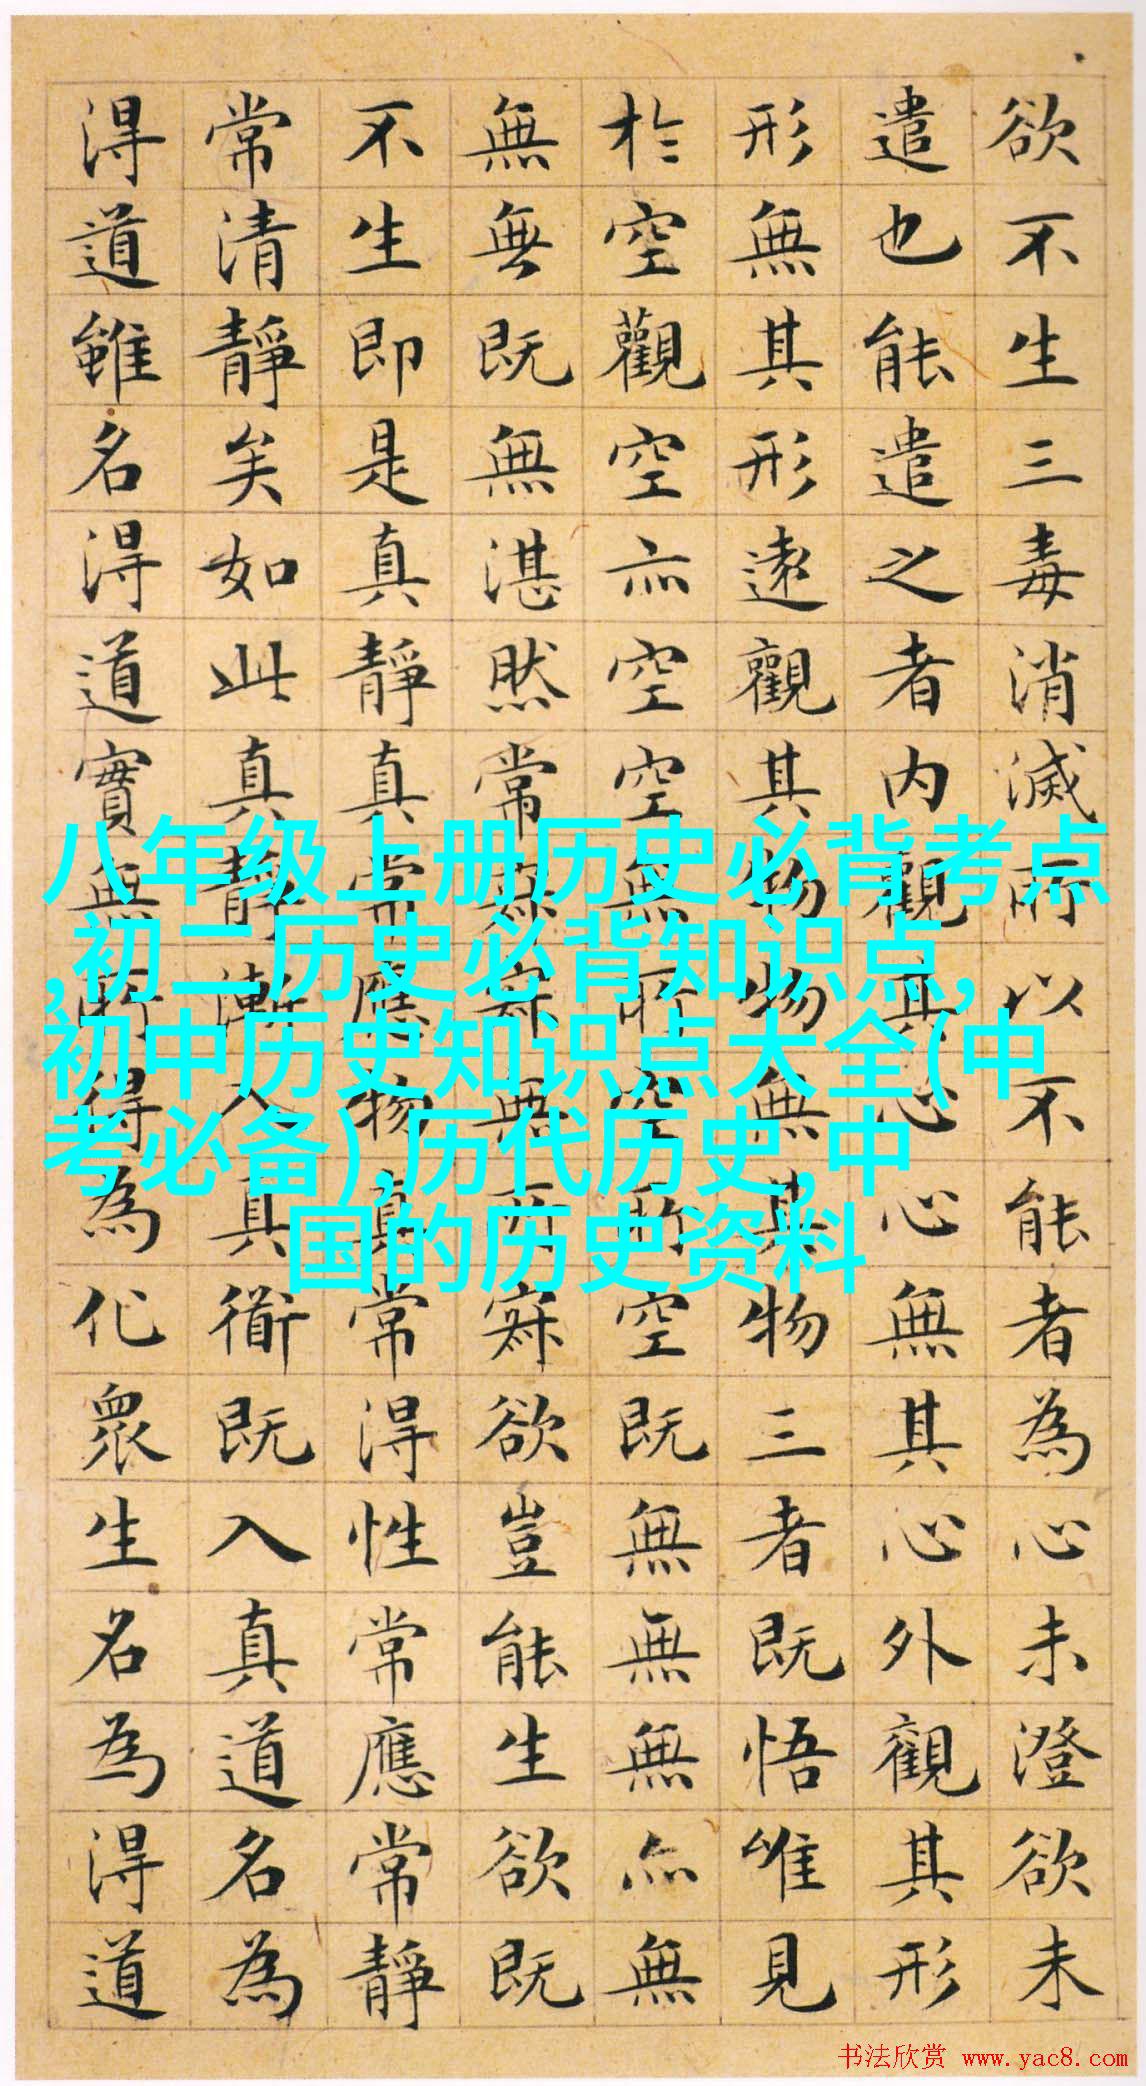 欲不生三毒消滅所以不能者為心未澄欲未
遣也能遣之者内觀其心心無其心外觀其形
形無其形遠觀其物物無其物三者既悟唯見
於空觀空亦空空無所空所空既無無無亦無
無無既無湛然常寂寂無所寂欲豈能生欲既
不生即是真靜真常應物真常得性常應常靜
常清靜矣如此真靜漸入真衜既入真道名為
得道雖名得道實無所得為化眾生名為得道
八年级上册历史必背考点
,初二历史必背知识点,
初中历史知识点大全(中
考必备),历代历史,中
国的历史资料
书法欣赏 www.yac8.com